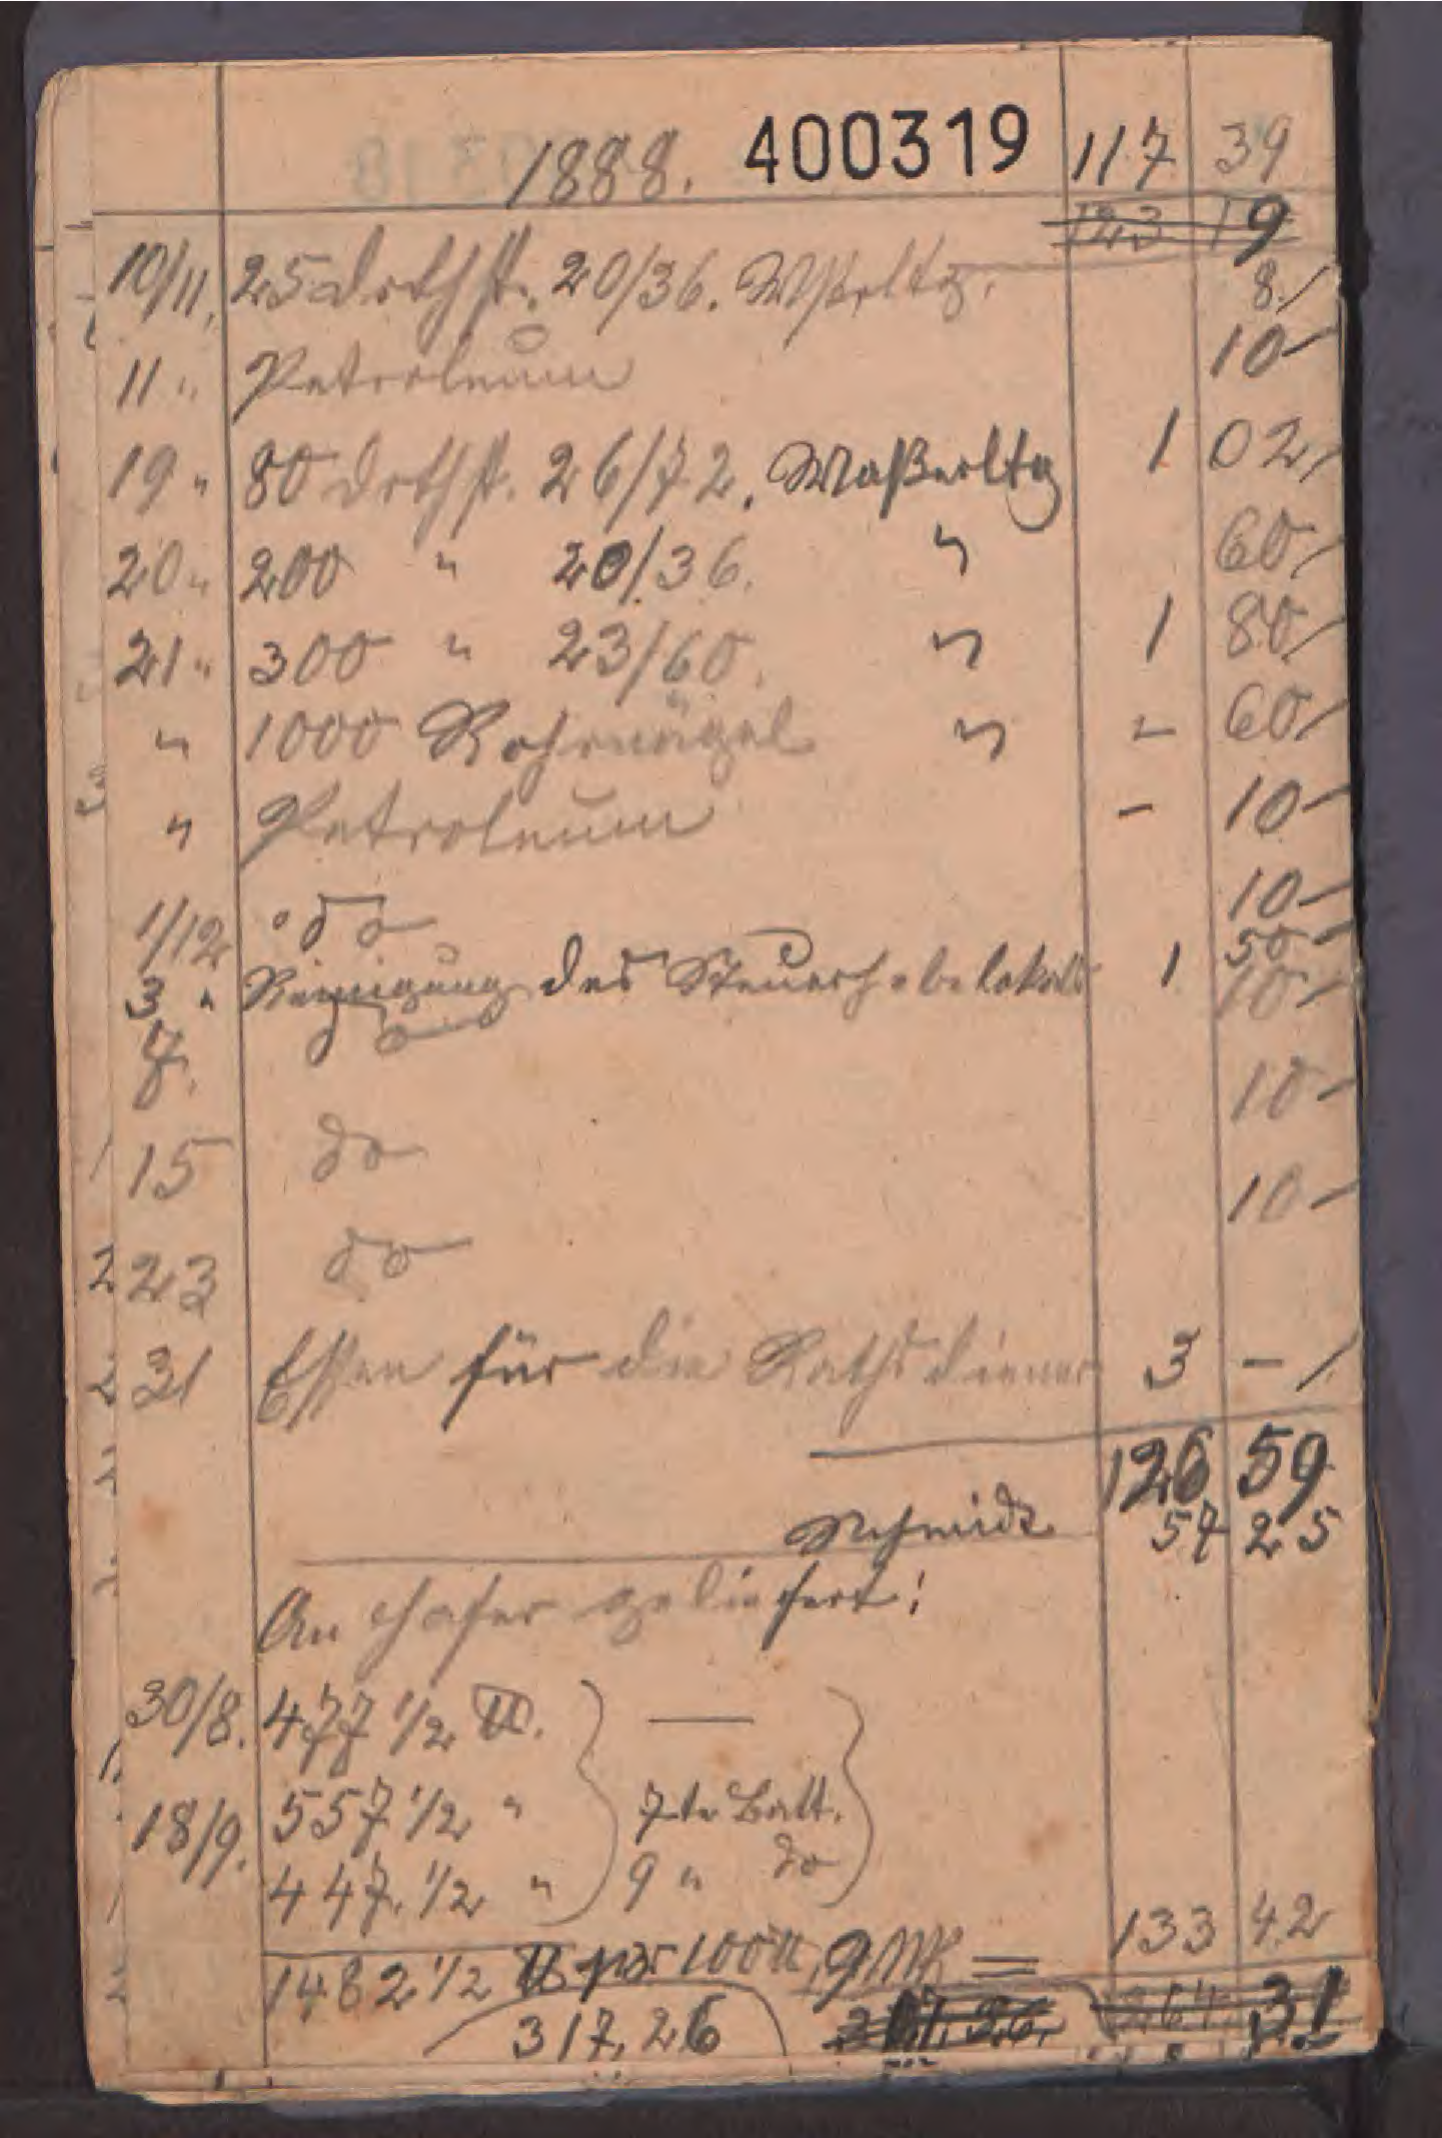 1888. 400319 117 39
123 19
10/11. 25 Drthst. 20/36. Wßerltg. 8./
11 " Petroleum 10
19 " 80 Drthst. 26/72. Waßerltg 1 02
20 " 200 " 20/36. " 60
21 " 300 " 23/60. " 1 80
" 1000 Rohrnägel " - 60
" Petroleum - 10
1/12 do 10
3 " Reinigung des Steuerhebelokals 1 50
7. do 10
15 do 10
23 do 10
31 Essen für die Rathsdiener 3 -
126 59
Schmidt 57 25
An Hafer geliefert:
30/8. 477 1/2 ℔.
18/9. 557 1/2 " 7te Batt.
447. 1/2 " 9 " do
1482 1/2 ℔ pr 100 ℔, 9 MK = 133 42
317,26 317,36. 264 31